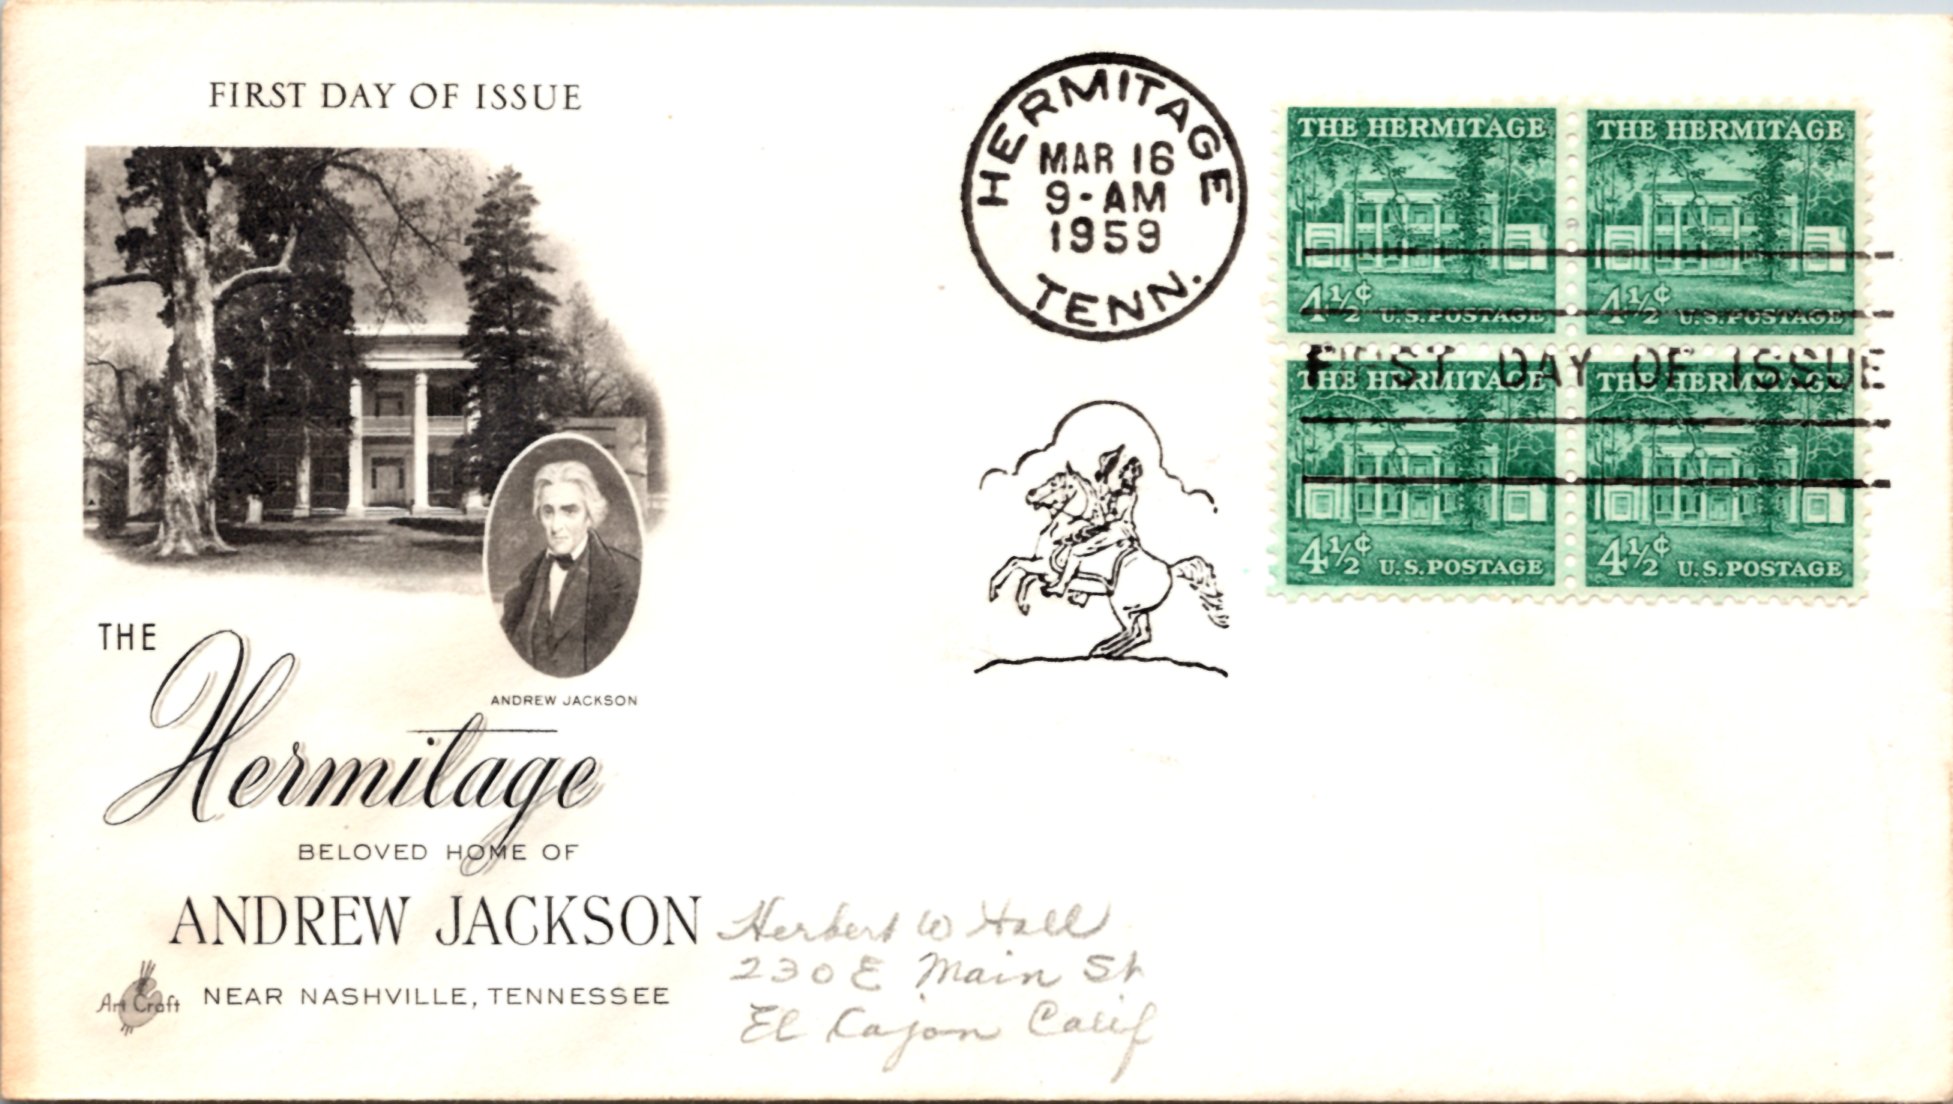 FIRST DAY OF ISSUE
ANDREW JACKSON
THE
Hermitage
BELOVED HOME OF
ANDREW JACKSON
NEAR NASHVILLE, TENNESSEE
Art Craft
HERMITAGE
MAR 16
9-AM
1959
TENN.
THE HERMITAGE
4½¢ U.S.POSTAGE
THE HERMITAGE
4½¢ U.S.POSTAGE
FIRST DAY OF ISSUE
THE HERMITAGE
4½¢ U.S.POSTAGE
THE HERMITAGE
4½¢ U.S.POSTAGE
Herbert W Hall
230 E Main St
El Cajon Calif